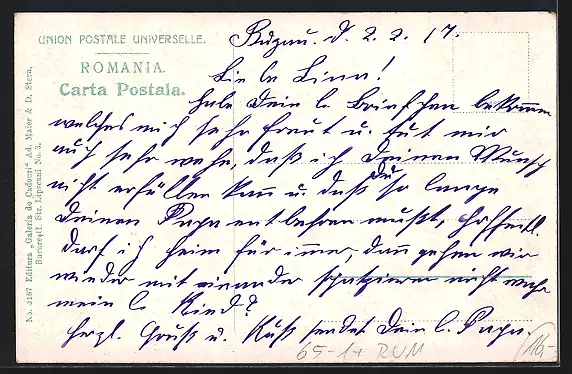 UNION POSTALE UNIVERSELLE.
ROMANIA.
Carta Postala.
No. 3187 Editura „Galeria de Cadouri" Ad. Maier & D. Stern,
Bucureşti. Str. Lipscani No. 3.
Buzau. d. 2.2.17.
Liebe Lina!
Habe Dein l. Briefchen bekommen
welches mich sehr freut u. tut mir
auch sehr wehe, daß ich Deinen Wunsch
nicht erfüllen kann u. daß Du so lange
Deinen Papa entbehren mußt, hoffentl.
darf ich heim für immer, dann gehen wir
wieder mit einander spatzieren nicht wahr
mein l. Kind?
Herzl. Gruß u. Kuß sendet Dein l. Papa.
65-1+ RUM
16,-